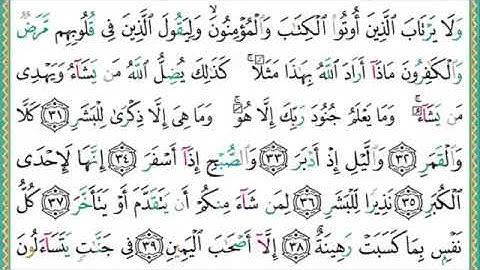 وَلَا يَرْتَابَ ٱلَّذِينَ أُوتُوا۟ ٱلْكِتَٰبَ وَٱلْمُؤْمِنُونَ ۙ وَلِيَقُولَ ٱلَّذِينَ فِى قُلُوبِهِم مَّرَضٌ
وَٱلْكَٰفِرُونَ مَاذَآ أَرَادَ ٱللَّهُ بِهَٰذَا مَثَلًا ۚ كَذَٰلِكَ يُضِلُّ ٱللَّهُ مَن يَشَآءُ وَيَهْدِى
مَن يَشَآءُ ۚ وَمَا يَعْلَمُ جُنُودَ رَبِّكَ إِلَّا هُوَ ۚ وَمَا هِىَ إِلَّا ذِكْرَىٰ لِلْبَشَرِ ٣١ كَلَّا
وَٱلْقَمَرِ ٣٢ وَٱلَّيْلِ إِذْ أَدْبَرَ ٣٣ وَٱلصُّبْحِ إِذَآ أَسْفَرَ ٣٤ إِنَّهَا لَإِحْدَى
ٱلْكُبَرِ ٣٥ نَذِيرًا لِّلْبَشَرِ ٣٦ لِمَن شَآءَ مِنكُمْ أَن يَتَقَدَّمَ أَوْ يَتَأَخَّرَ ٣٧ كُلُّ
نَفْسٍۭ بِمَا كَسَبَتْ رَهِينَةٌ ٣٨ إِلَّآ أَصْحَٰبَ ٱلْيَمِينِ ٣٩ فِى جَنَّٰتٍ يَتَسَآءَلُونَ